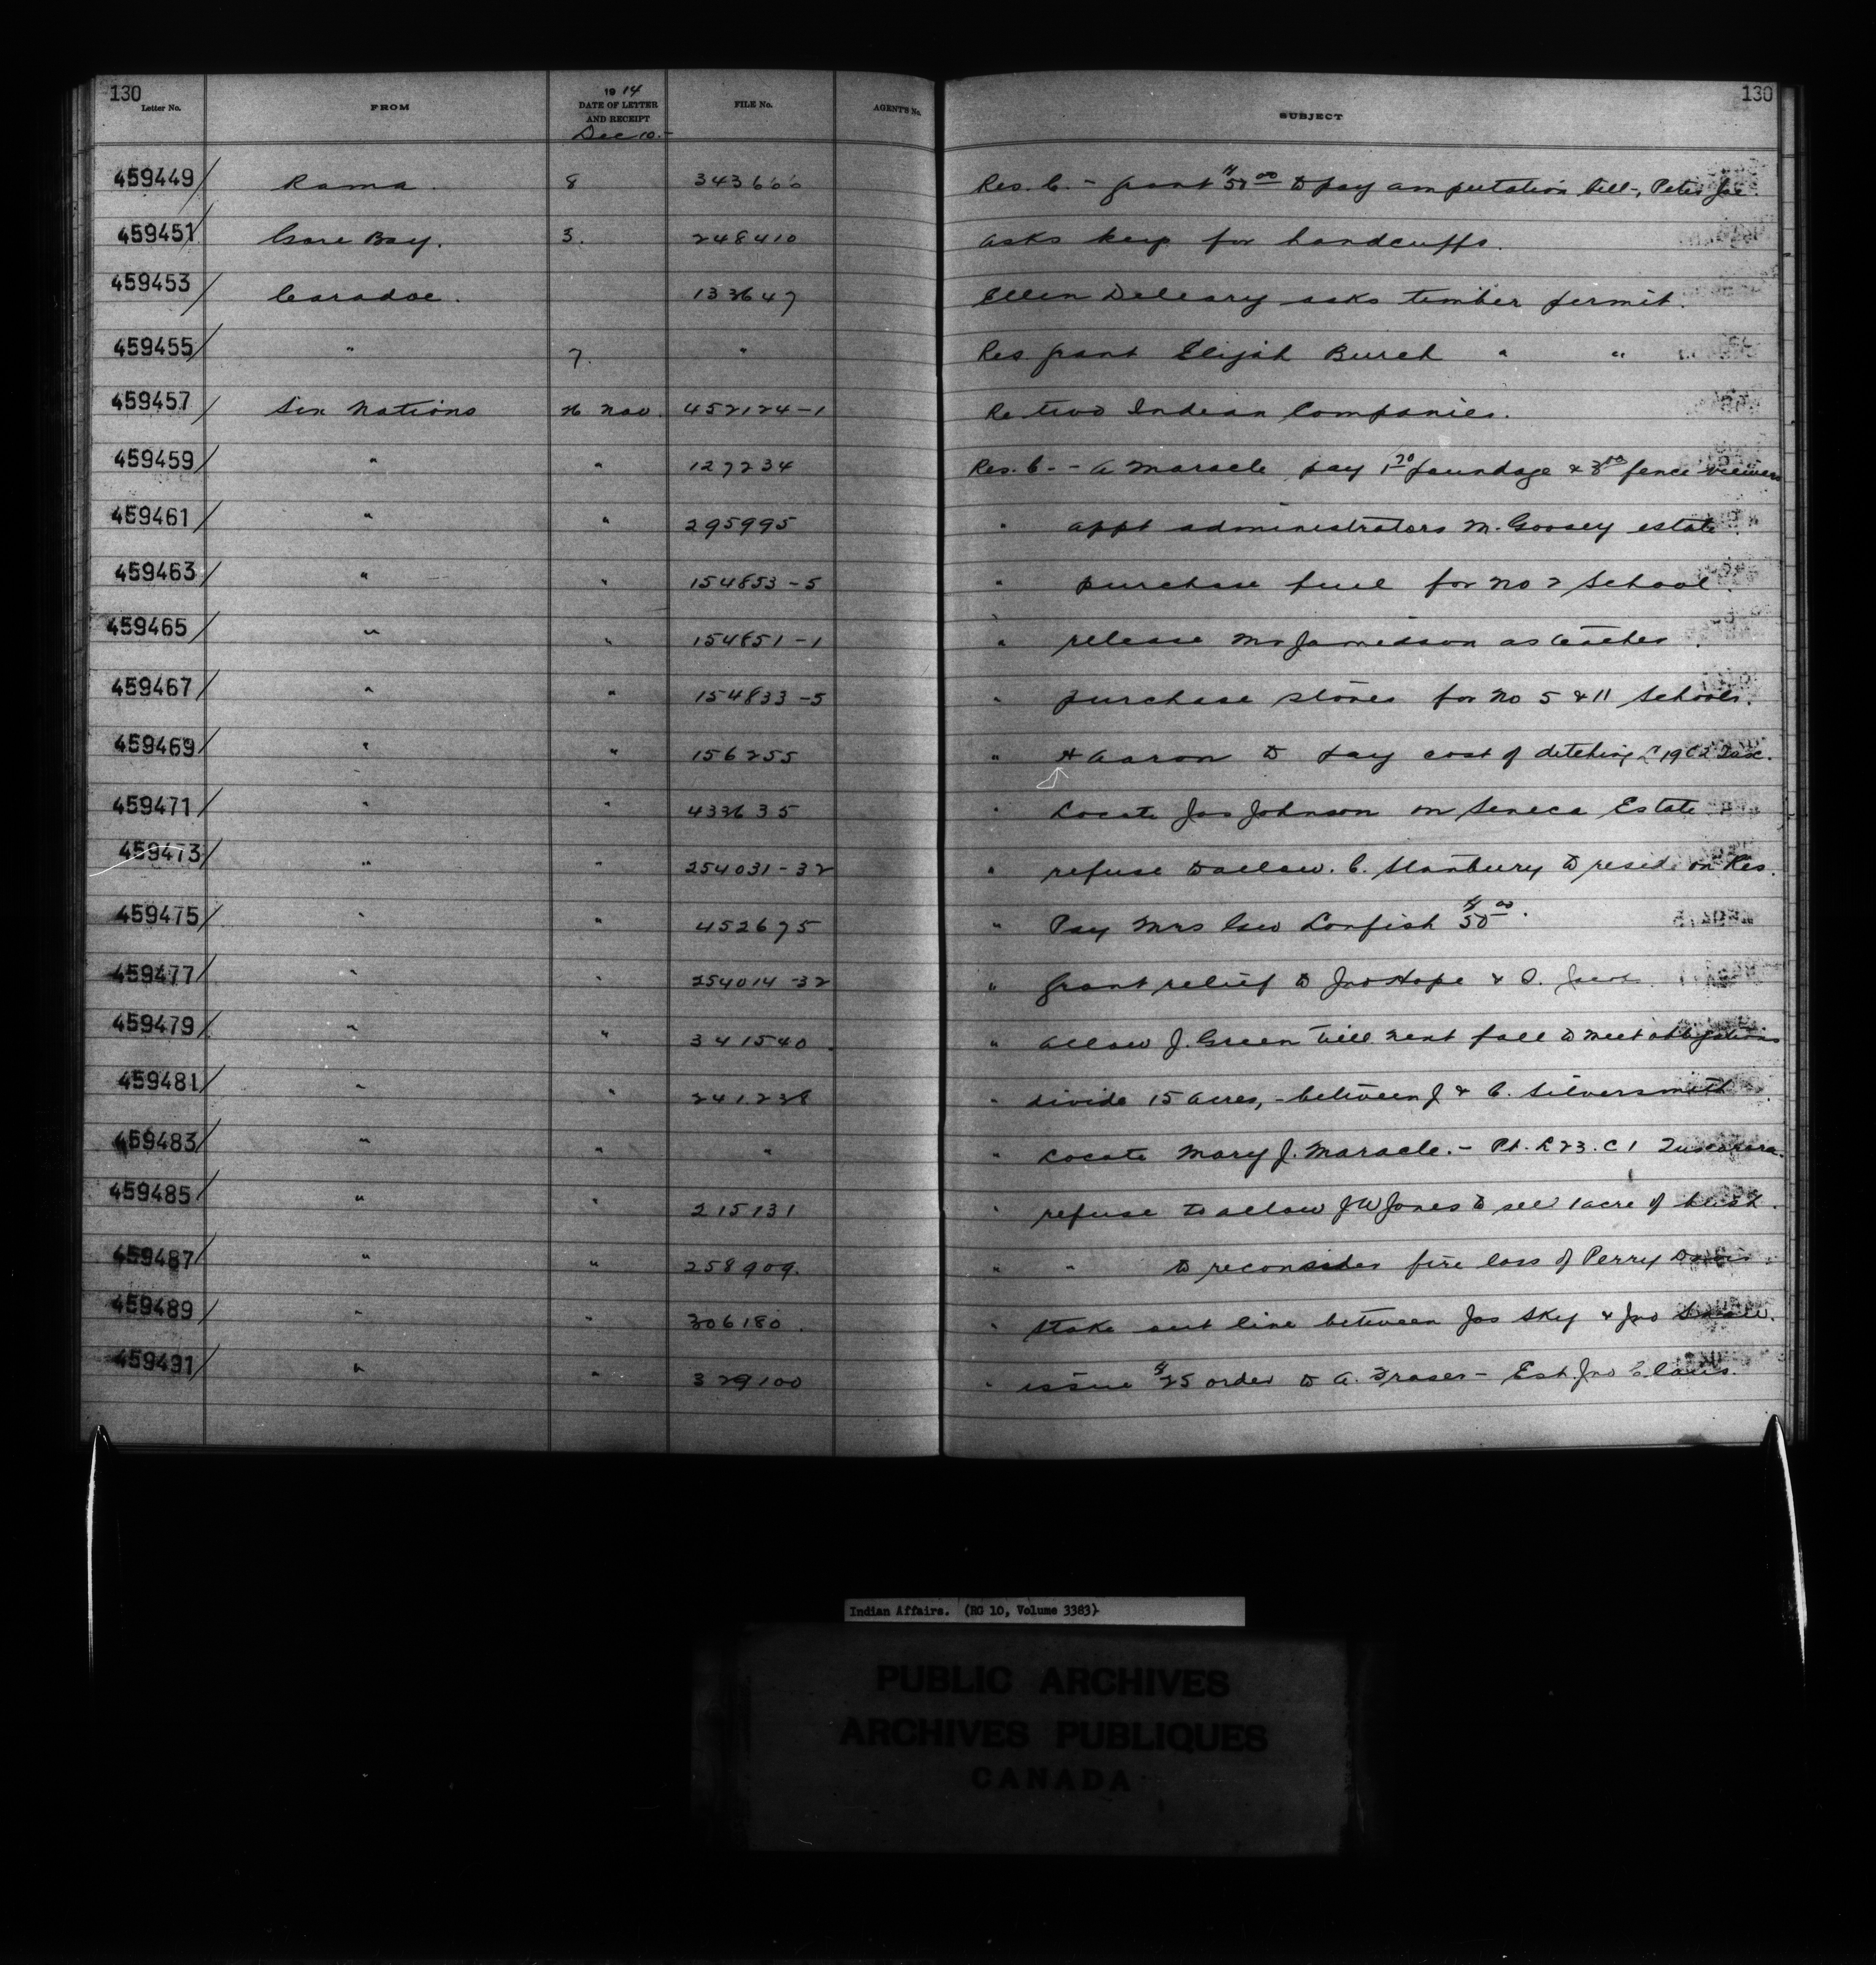 130 130
Letter No. FROM 1914 DATE OF LETTER AND RECEIPT FILE No. AGENT'S No. SUBJECT
Dec 10.-
459449/ Rama. 8 343666 Res. C. - grant $50 00 to pay amputation bill -, Peter
459451 Gore Bay. 3. 248410 asks key for handcuffs.
459453/ Caradoc. 133647 Ellen Deleary asks timber permit.
459455/ " 7. " Res grant Elijah Burch " "
459457/ Six Nations 26 Nov. 452124-1 Re two Indian Companies.
459459/ " " 127234 Res. C. - A Maracle pay 1 20 poundage & 3 00 fence viewers
459461/ " " 295995 " appt administrators M. Goosey estate.
459463/ " " 154853-5 " purchase fuel for No 2 School.
459465/ " " 154851-1 " release Mr Jamieson as teacher.
459467/ " " 154833-5 " purchase stoves for No 5 & 11 Schools.
459469/ " " 156255 " H Aaron to pay cost of ditching L 19 C 2 Tusc.
459471/ " " 433635 " Locate Jas Johnson on Seneca Estate
459473/ " " 254031-32 " refuse to allow C. Stanbury to reside on Res.
459475/ " " 452675 " Pay Mrs Geo Lonfish $50 00.
459477/ " " 254014-32 " Grant relief to Jno Hope & D.
459479/ " " 341540. " Allow J. Green till next fall to meet obligations
459481/ " " 241238 " divide 15 acres, - between J & C. Silversmith.
459483/ " " " " Locate Mary J. Maracle. - Pt. L 23. C 1 Tuscarora.
459485/ " " 215131 " refuse to allow J W Jones to sell 1 acre of bush.
459487/ " " 258909. " " to reconsider fire loss of Perry Davis
459489/ " " 306180. " Stake out line between Jos Sky & Jno
459491/ " " 329100 " issue $25 order to A. Fraser - Est Jno Claus.
Indian Affairs. (RG 10, Volume 3383)
PUBLIC ARCHIVES
ARCHIVES PUBLIQUES
CANADA